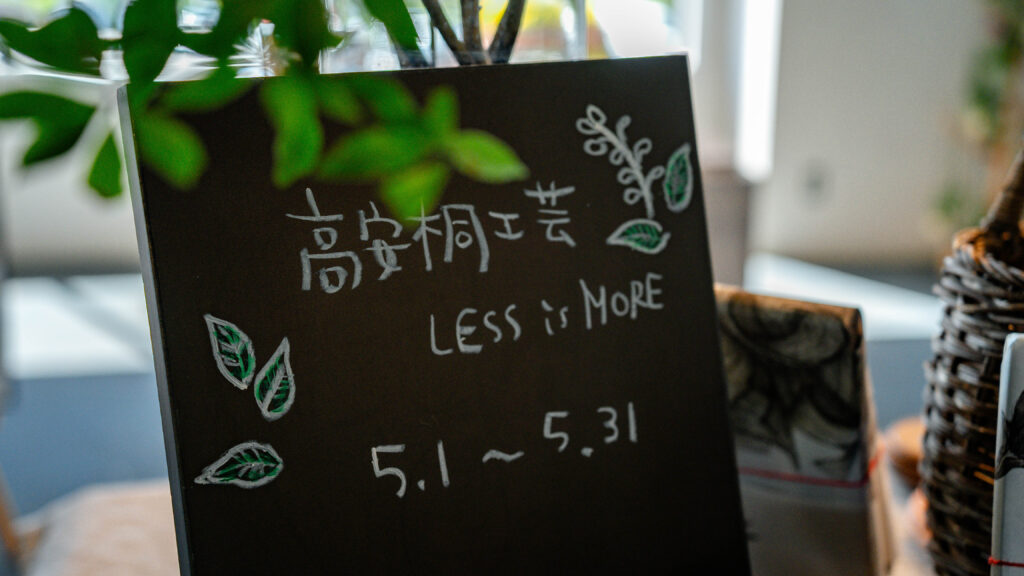 高安桐工芸
LESS is MORE
5.1 ~ 5.31